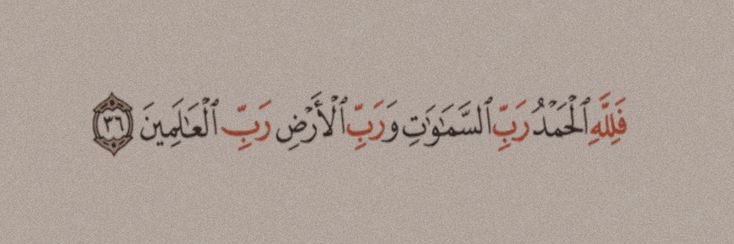 فَلِلَّهِ ٱلْحَمْدُ رَبِّ ٱلسَّمَٰوَٰتِ وَرَبِّ ٱلْأَرْضِ رَبِّ ٱلْعَٰلَمِينَ ٣٦